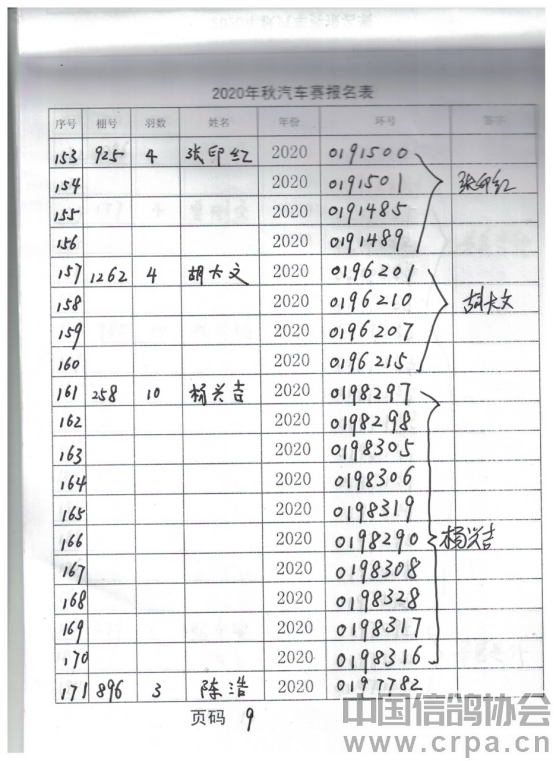 2020年秋汽车赛报名表
序号 棚号 羽数 姓名 年份 环号 签字
153 925 4 张印红 2020 0191500
154 2020 0191501 张印红
155 2020 0191485
156 2020 0191489
157 1262 4 胡大文 2020 0196201
158 2020 0196210 胡大文
159 2020 0196207
160 2020 0196215
161 258 10 杨兴吉 2020 0198297
162 2020 0198298
163 2020 0198305
164 2020 0198306
165 2020 0198319
166 2020 0198290 杨兴吉
167 2020 0198308
168 2020 0198328
169 2020 0198317
170 2020 0198316
171 896 3 陈浩 2020 0197782
页码 9
中国信鸽协会
www.crpa.cn